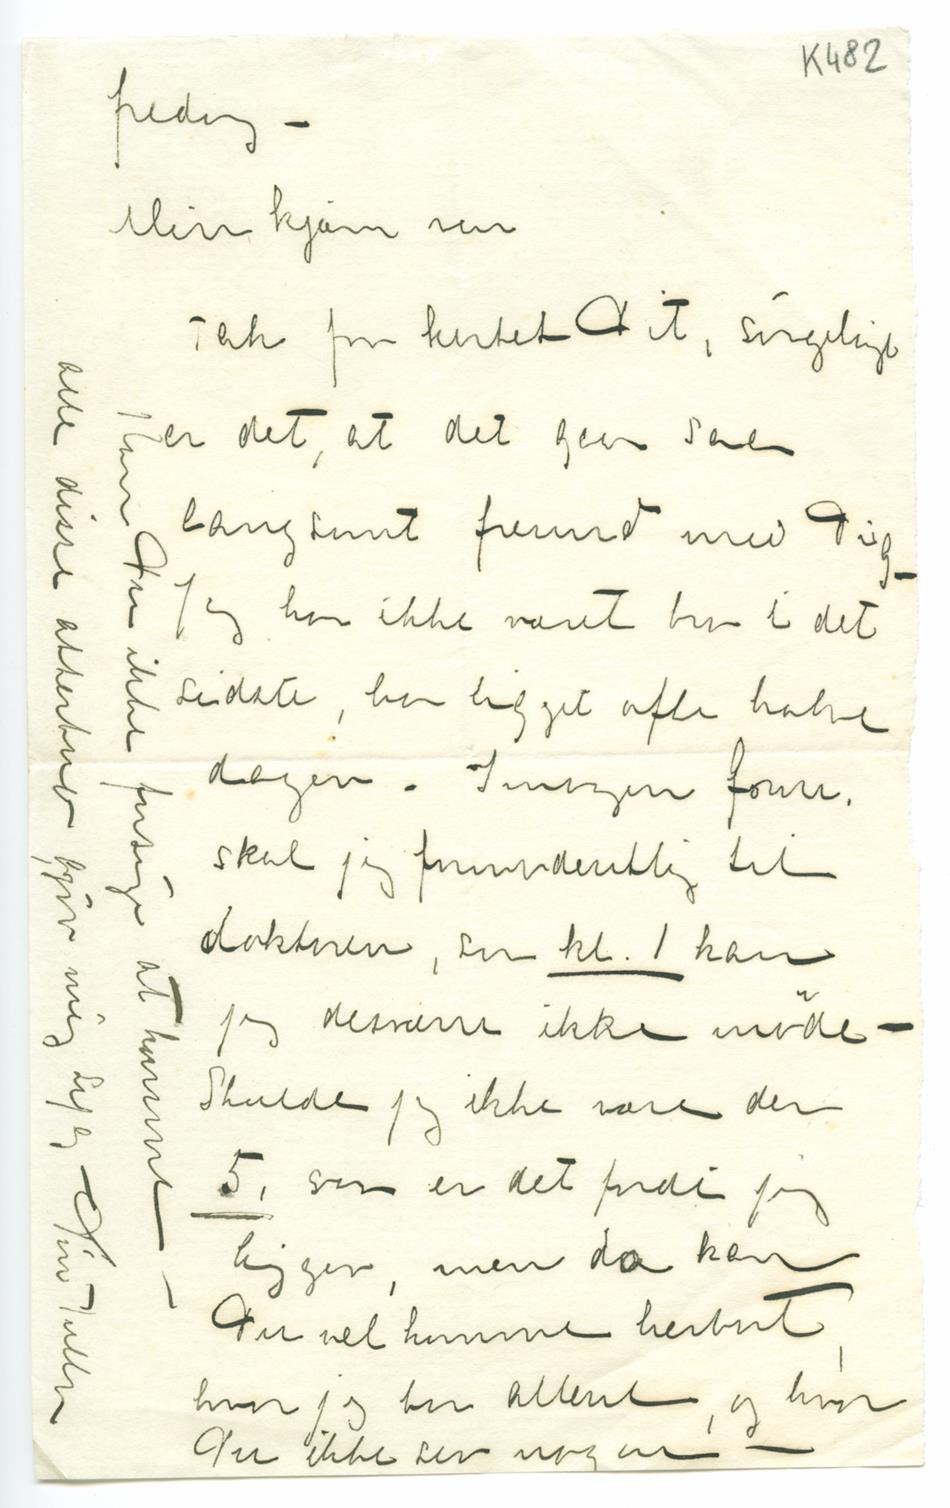 K482
fredag –
Min kjære ven
Tak for kortet Dit, sörgeligt
er det, at det gaar saa
langsomt fremad med Dig –
Jeg har ikke været bra i det
sidste, har ligget ofte halve
dagen. Imorgen form.
skal jeg forresten til
doktoren, saa kl. 1 kan
jeg desværre ikke møde –
Skulde jeg ikke være der
5, saa er det fordi jeg
ligger, men da kan
Du vel komme herbort,
hvor jeg bor alene, og hvor
Du ikke ser nogen –
Kan Du ikke forsöge at komme –
alle disse attentater gjör mig syg – Din Tulla